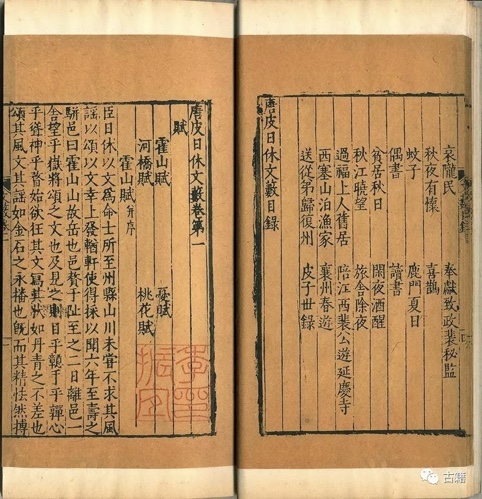 哀隴民 奉獻致政裴秘監
秋夜有懷 喜鵲
蚊子 鹿門夏日
偶書 讀書
貧居秋日 閑夜酒醒
秋江曉望 旅舍除夜
過福上人舊居 陪江西裴公遊延慶寺
西塞山泊漁家 襄州春遊
送從弟歸復州 皮子世録
唐皮日休文藪目録
唐皮日休文藪卷第一
賦
霍山賦 憂賦
河橋賦 桃花賦
霍山賦并序
臣日休以文爲命士所至州縣山川未嘗不求其風
謡以頌以文幸上發輶軒使得採以聞六年至壽之
駢邑曰霍山山故岳也邑贅于趾至之二日離邑一
舍望乎嶽將頌之文也及見之則目乎 手乎 心
乎 神乎瞀始欲狂其文寫其狀如丹青之不差也
頌其風文其謡如金石之永播也旣而其精怯然搏
古籍